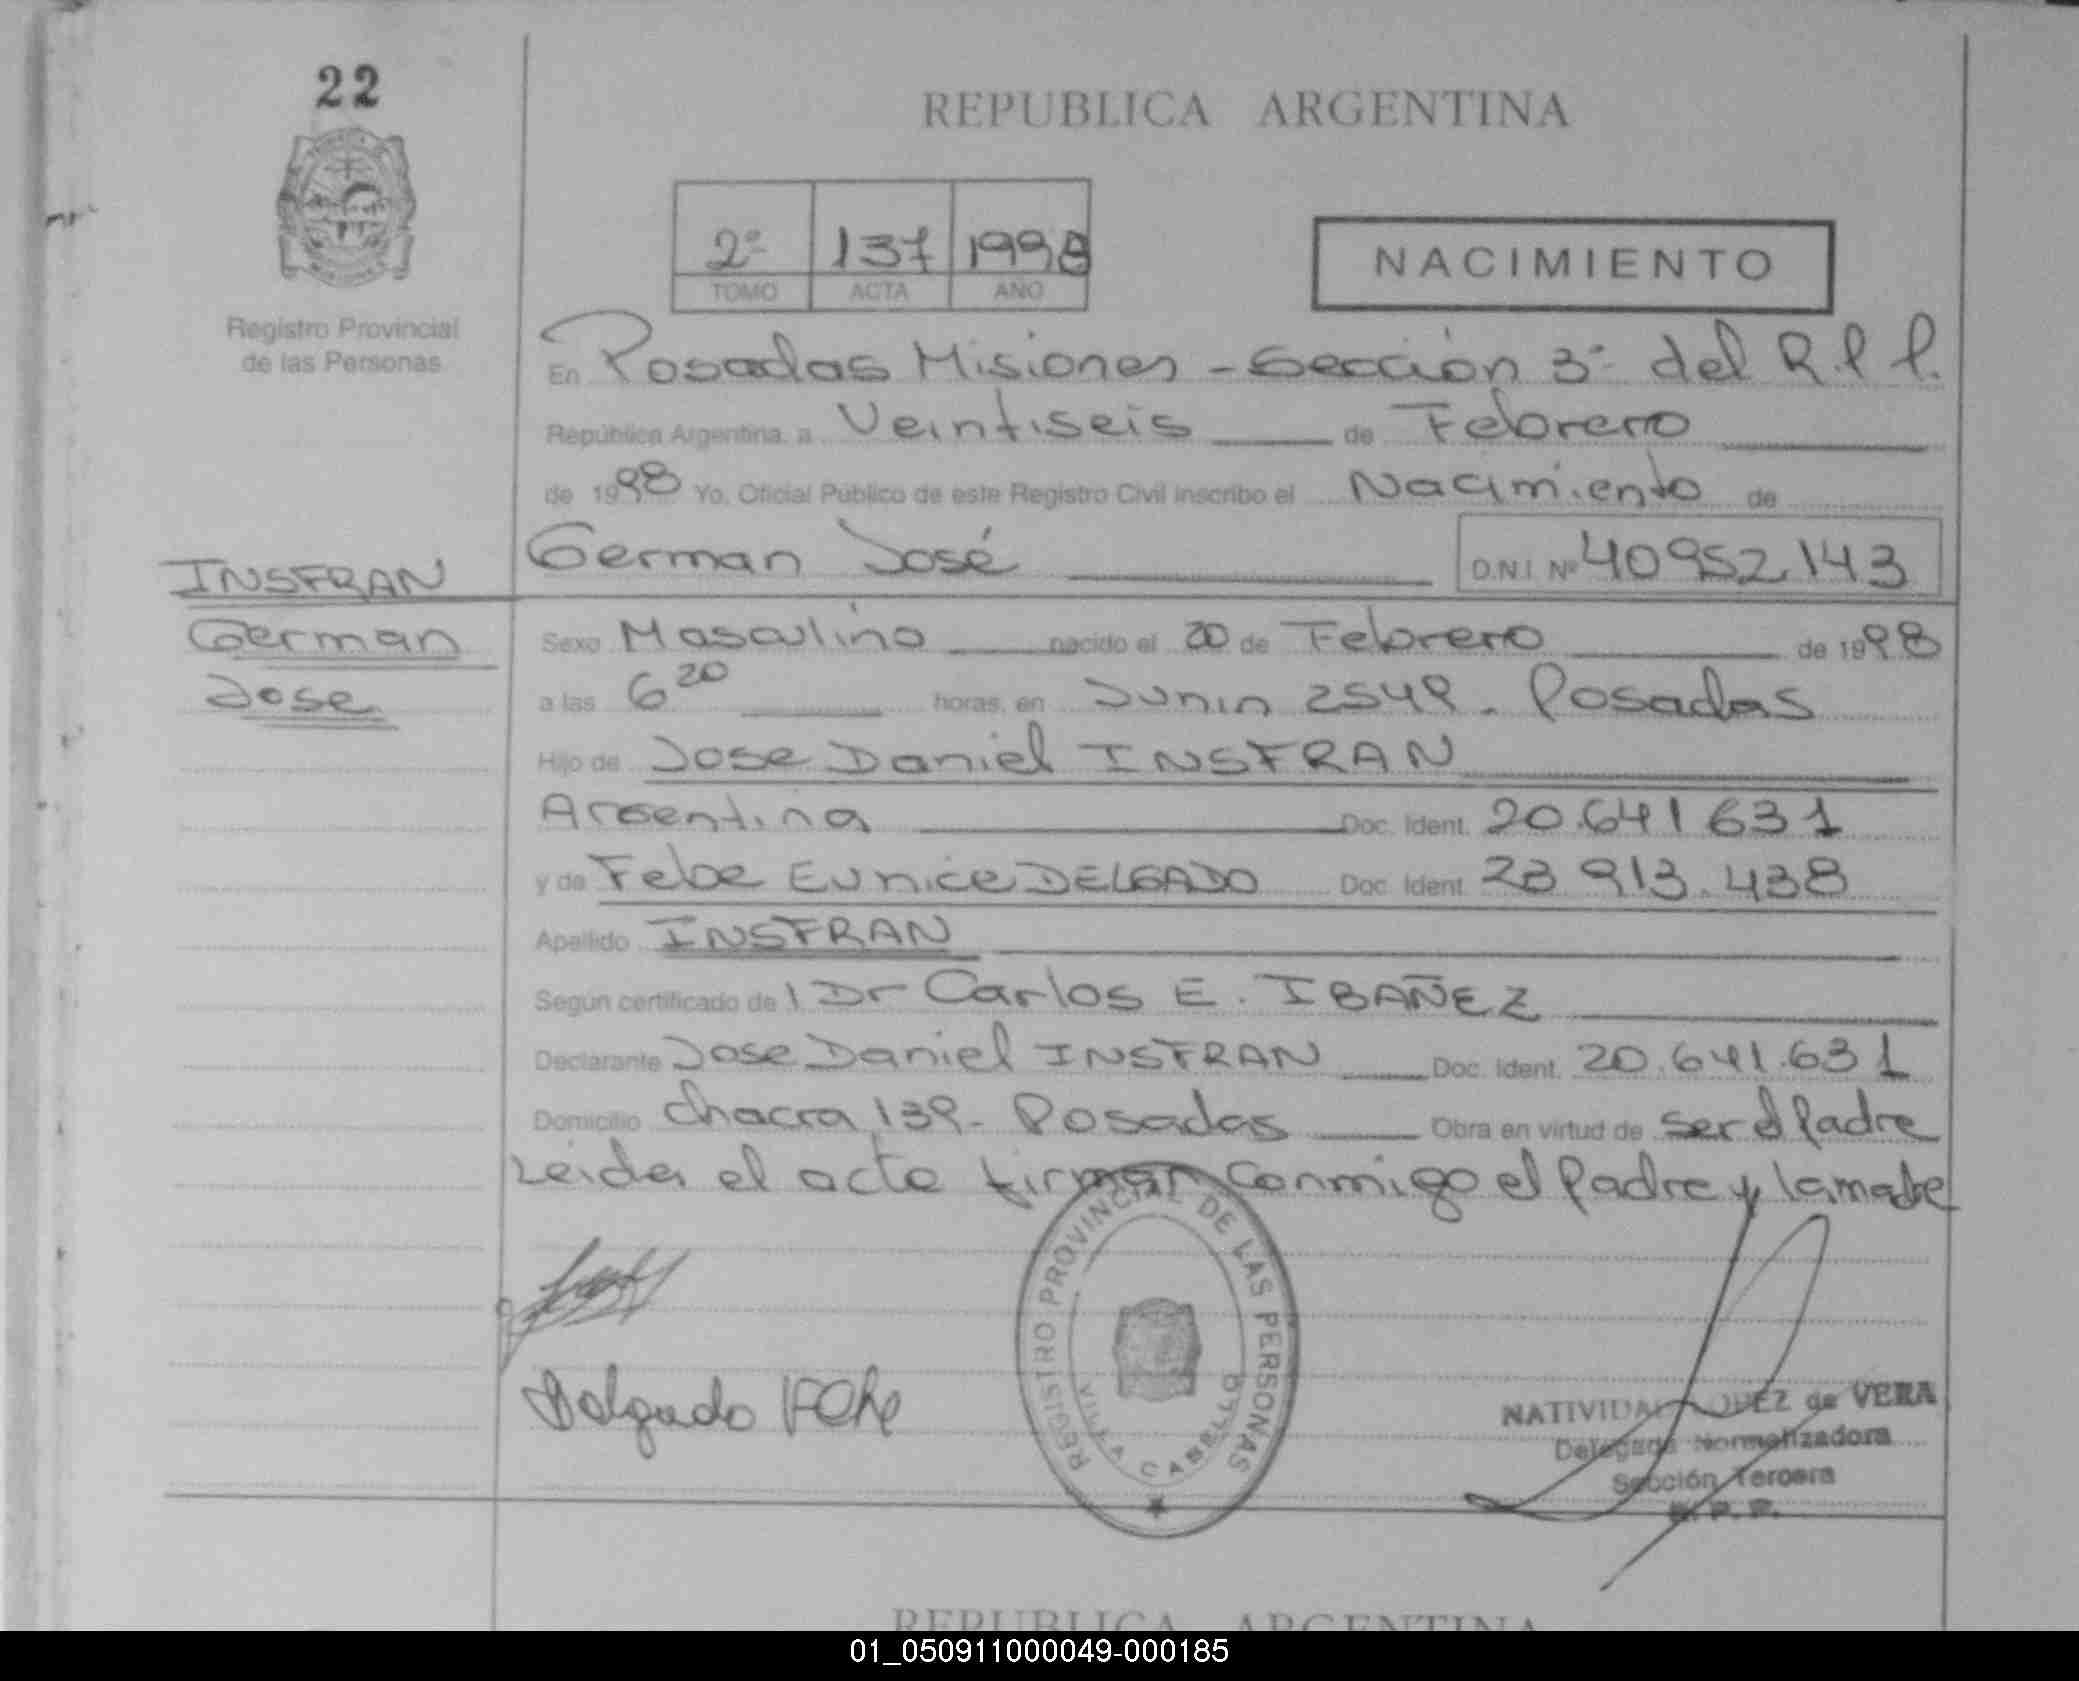 22
REPUBLICA ARGENTINA
2º 137 1998
TOMO ACTA AÑO
NACIMIENTO
Registro Provincial
de las Personas
En Posadas Misiones - Sección 3º del R.P.P.
República Argentina, a Veintiseis de Febrero
de 1998 Yo, Oficial Público de este Registro Civil inscribo el Nacimiento de
German José D.N.I. Nº 40952143
INSFRAN
German
Jose
Sexo Masculino nacido el 20 de Febrero de 1998
a las 6 20 horas, en Junin 2549 - Posadas
Hijo de Jose Daniel INSFRAN
Argentina Doc. Ident. 20.641631
y de Febe Eunice DELGADO Doc. Ident. 23.913.438
Apellido INSFRAN
Según certificado de l Dr Carlos E. IBAÑEZ
Declarante Jose Daniel INSFRAN Doc. Ident. 20.641.631
Domicilio Chacra 139 - Posadas Obra en virtud de ser el Padre
Leida el acta firman conmigo el Padre y la madre
REGISTRO PROVINCIAL DE LAS PERSONAS
VILLA CABELLO
Delgado Febe
de VERA
Delegada Normalizadora
Sección Tercera
R. P. P.
REPUBLICA ARGENTINA
01_050911000049-000185